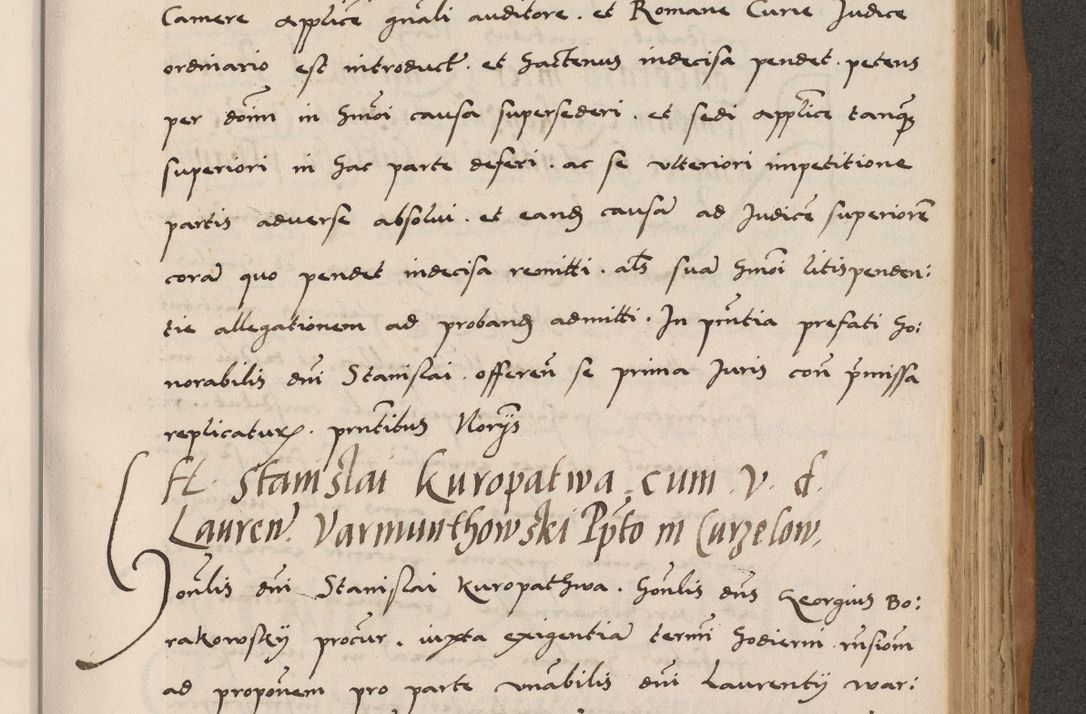 Camere applice gnali auditore . et Romane Curie Judice
ordinario est introduct et hactenus indecisa pendet . petens
per doim in hmoi causa supersederi . et sedi applice tanq
superiori in hac parte deferi . ac se ulteriori impetitione
partis adverse absolui . et eand causa ad Judice superiore
cora quo pendet indecisa remitti . als sua hmoi litispenden:
tie allegationem ad proband admitti . In pntia prefati ho:
norabilis dni Stanislai . offeren se prima Juris con pmissa
replicatur . pntibus Norijs
Stanislai Kuropatwa . cum . v . d .
Lauren . Varmunthowski Ppto in Curzelow .
Honlis dni Stanislai Kuropathwa . honlis dns Georgius Bo:
rakowskij procur . iuxta exigentia termi hodierni rnsiom
ad propoem pro parte vnabilis dni Laurentij war: